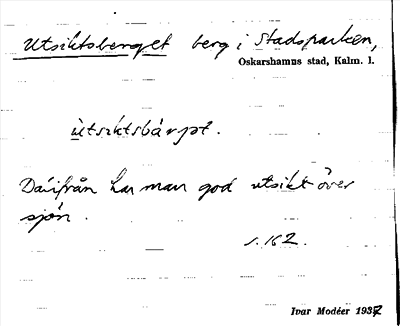 Utsiktsberget berg i Stadsparken,
Oskarshamns stad, Kalm. l.
ùtsiktsbárjət.
Därifrån har man god utsikt över
sjön.
s. 162.
Ivar Modéer 1937